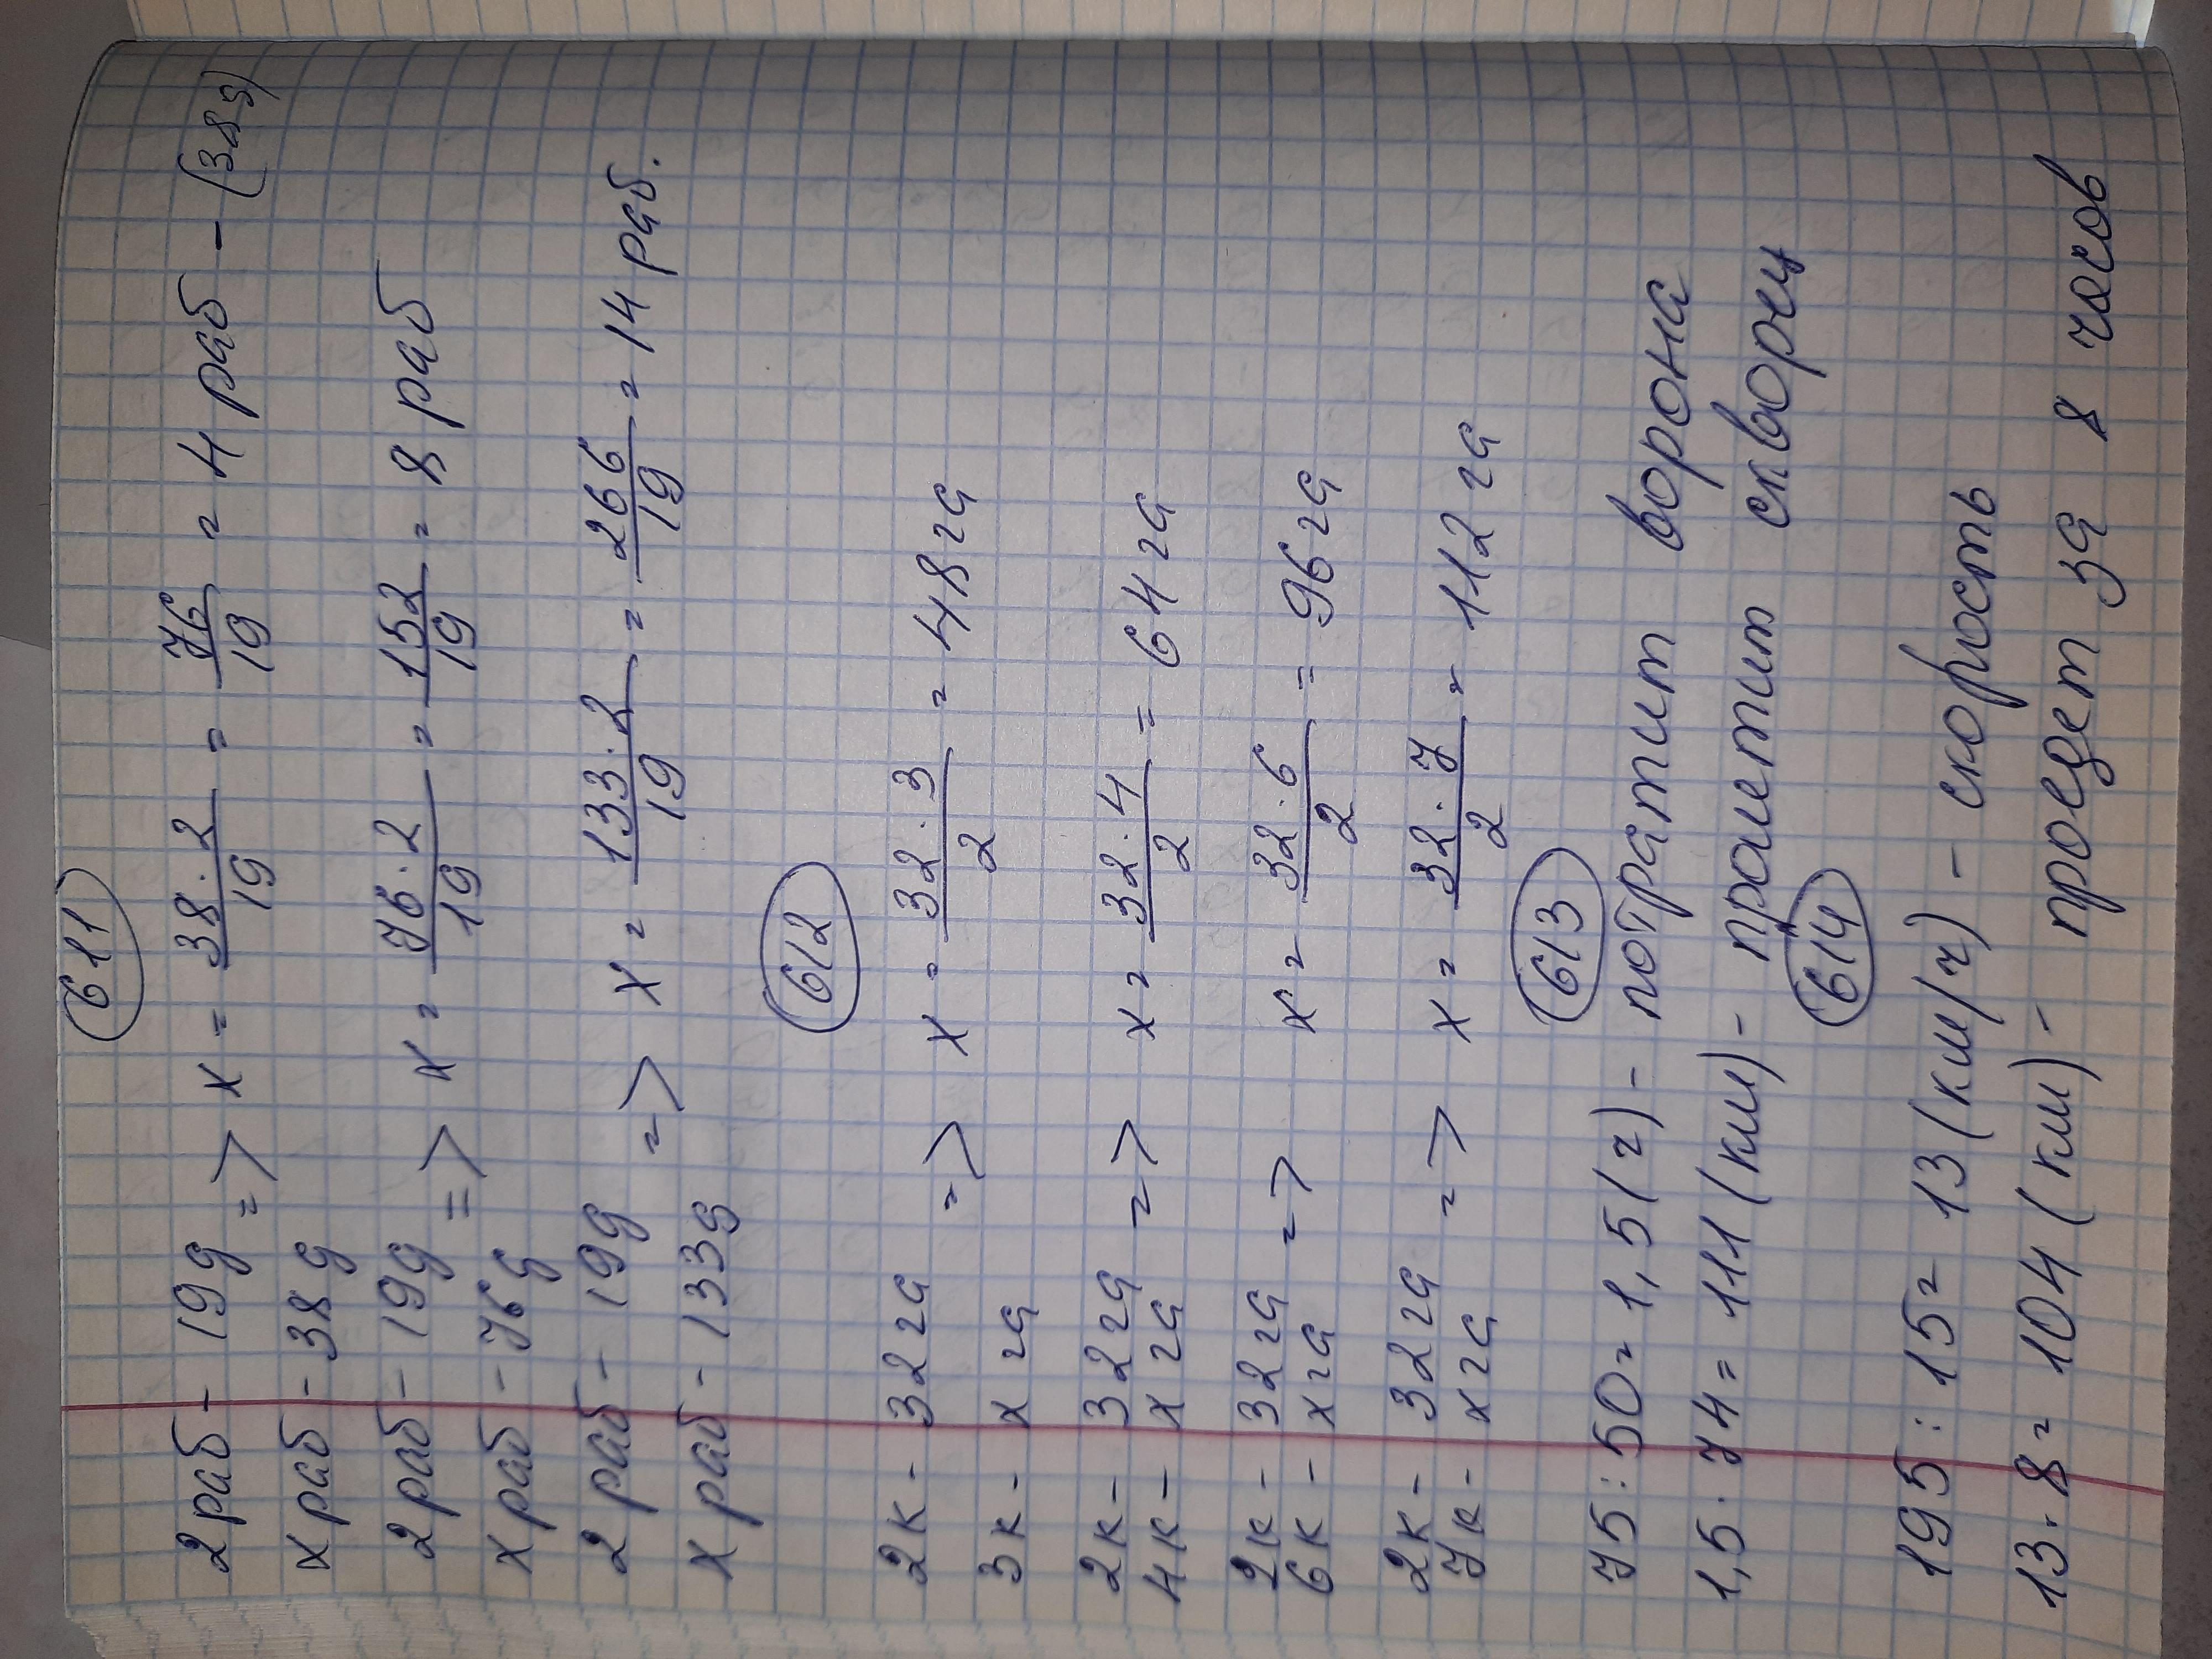 611
2 раб - 19 g => x = 38·2/19 = 76/19 = 4 раб - (38g)
x раб - 38 g
2 раб - 19 g => x = 76·2/19 = 152/19 = 8 раб
x раб - 76 g
2 раб - 19 g => x = 133·2/19 = 266/19 = 14 раб.
x раб - 133 g
612
2к - 32 га => x = 32·3/2 = 48 га
3к - x га
2к - 32 га => x = 32·4/2 = 64 га
4к - x га
2к - 32 га => x = 32·6/2 = 96 га
6к - x га
2к - 32 га => x = 32·7/2 = 112 га
7к - x га
613
75 : 50 = 1,5 (ч) - потратит ворона
1,5 · 74 = 111 (км) - пролетит скворец
614
195 : 15 = 13 (км/ч) - скорость
13 · 8 = 104 (км) - проедет за 8 часов